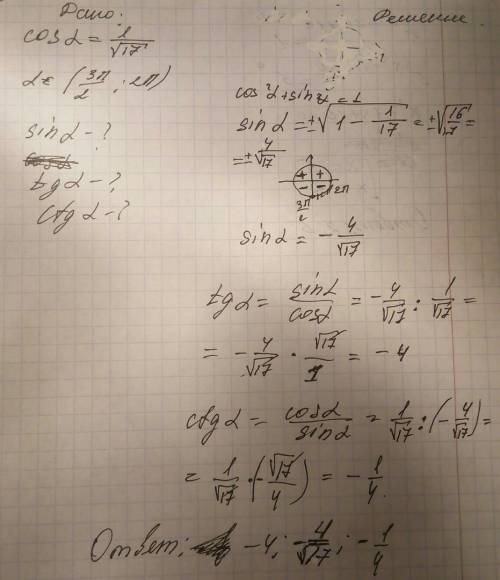 Дано:
cos α = 1/√17
α ∈ (3π/2 ; 2π)
sin α - ?
tg α - ?
ctg α - ?
Решение
cos²α + sin²α = 1
sin α = ±√(1 - 1/17) = ±√(16/17) =
= ± 4/√17
+ +
- -
3π/2 2π
sin α = - 4/√17
tg α = sin α/cos α = - 4/√17 : 1/√17 =
= - 4/√17 · √17/1 = - 4
ctg α = cos α/sin α = 1/√17 : (- 4/√17) =
= 1/√17 · (- √17/4) = - 1/4
Ответ: - 4; - 4/√17; - 1/4